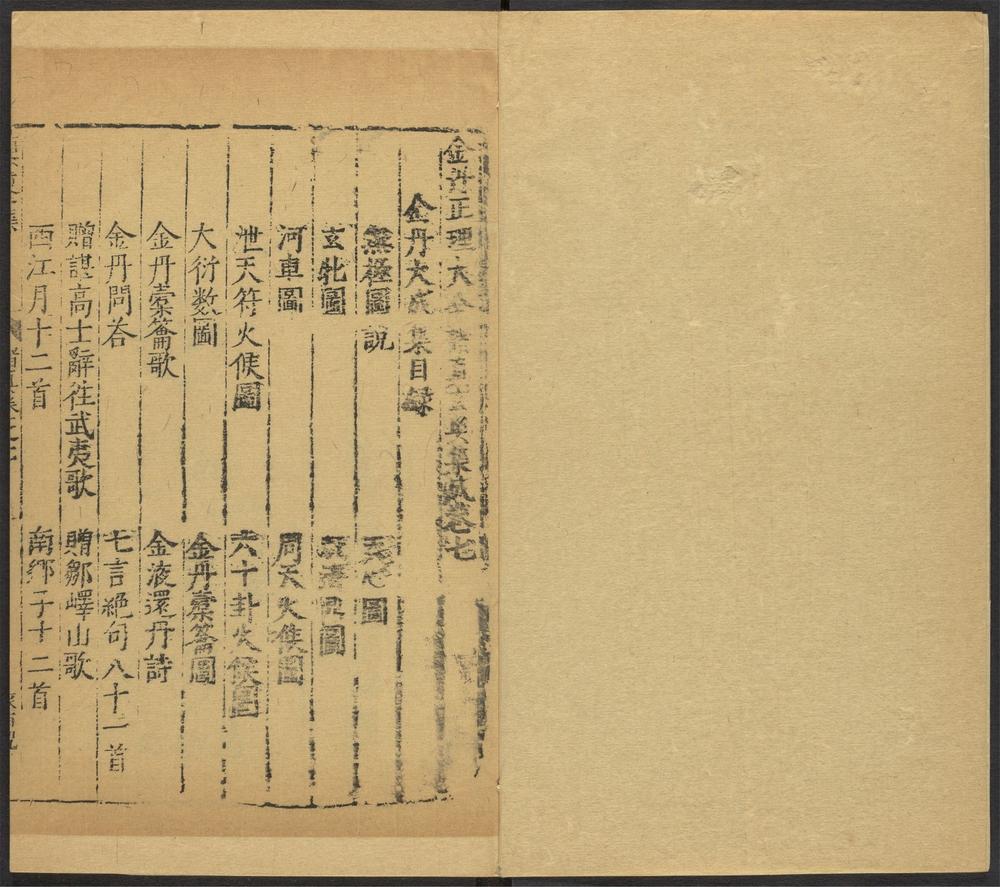 金丹正理大全諸眞玄奥集成卷七
金丹大成集目録
無極圖說　天心圖
玄牝圖　圖
河車圖　周天火候圖
泄天符火候圖　六十卦火候圖
大衍数圖　金丹橐籥圖
金丹橐籥歌　金液還丹詩
金丹問答　七言絶句八十一首
贈諶高士辭徃武夷歌　贈鄒嶧山歌
西江月十二首　南鄉子十二首